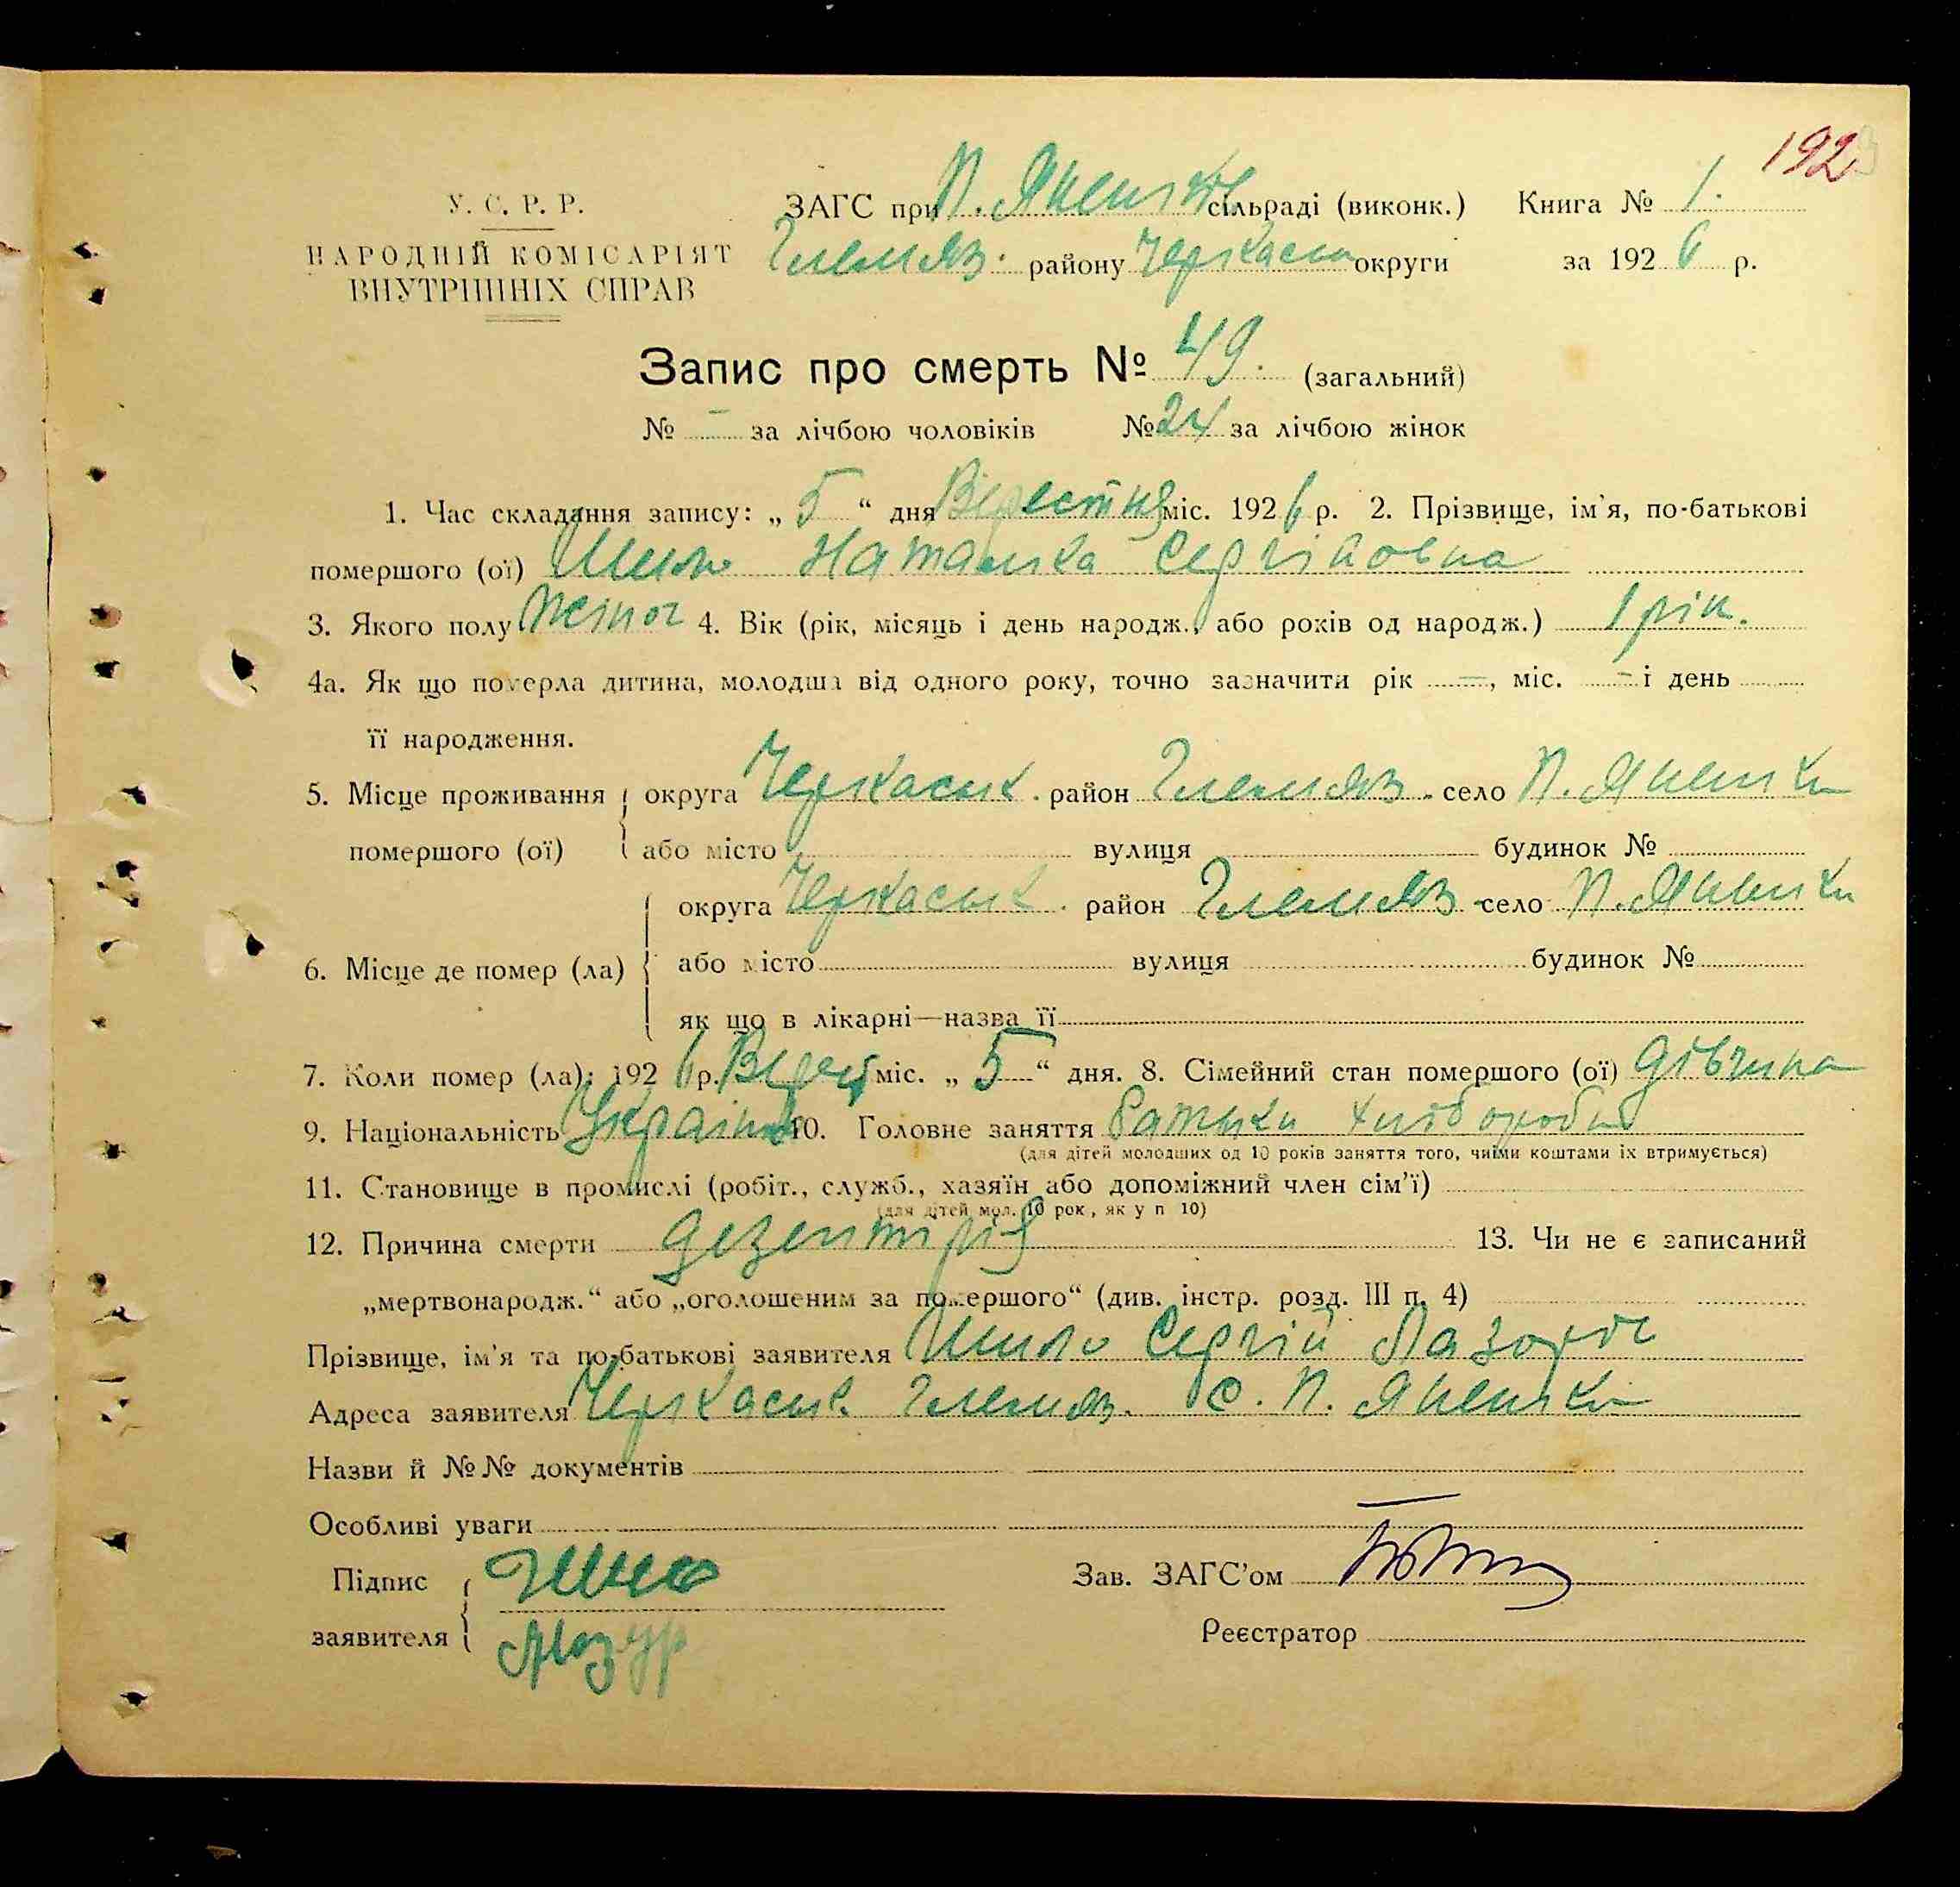 192
У. С. Р. Р.
НАРОДНІЙ КОМІСАРІЯТ
ВНУТРІШНІХ СПРАВ
ЗАГС при П. сільраді (виконк.) Книга № 1.
Гельмяз. району Черкаськ округи за 1926 р.
Запис про смерть № 49. (загальний)
№ – за лічбою чоловіків № 24 за лічбою жінок
1. Час складання запису: „ 5 “ дня Вересня міс. 1926 р. 2. Прізвище, ім'я, по-батькові
помершого (ої) Шило Наталка Сергіовна
3. Якого полу жіноч 4. Вік (рік, місяць і день народж., або років од народж.) 1 рік.
4а. Як що померла дитина, молодша від одного року, точно зазначити рік –, міс. – і день
її народження.
5. Місце проживання округа Черкаськ. район Гельмяз. село П.
помершого (ої) або місто вулиця будинок №
округа Черкаськ. район Гельмяз село П.
6. Місце де помер (ла) або місто вулиця будинок №
як що в лікарні—назва її
7. Коли помер (ла): 1926 р. Верес міс. „ 5 “ дня. 8. Сімейний стан помершого (ої) дівчина
9. Національність Україн 10. Головне заняття батьки хлібороби
(для дітей молодших од 10 років заняття того, чиїми коштами їх втримується)
11. Становище в промислі (робіт., служб., хазяїн або допоміжний член сім'ї)
(для дітей мол. 10 рок., як у п 10)
12. Причина смерти дезентрія 13. Чи не є записаний
„мертвонародж.“ або „оголошеним за помершого“ (див. інстр. розд. III п. 4)
Прізвище, ім'я та по-батькові заявителя Шило Сергій
Адреса заявителя Черкаськ. Гельмяз. С. П.
Назви й №№ документів
Особливі уваги
Підпис Шило Зав. ЗАГС'ом
заявителя Мазур Реєстратор